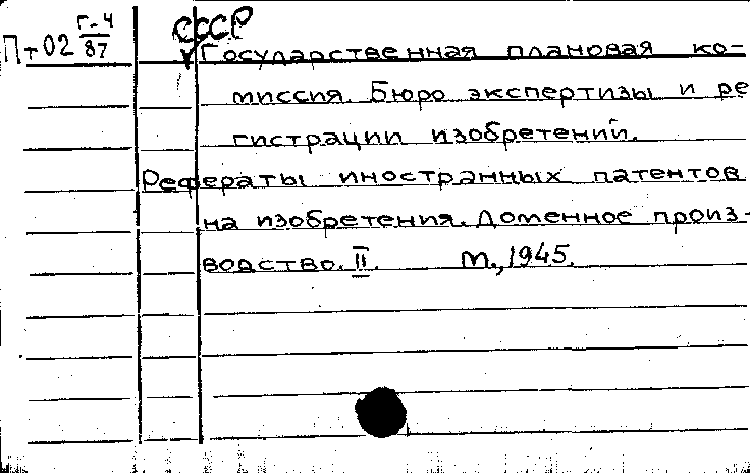 Г-4
Пт02 87
СССР
Государственная плановая ко-
миссия. Бюро экспертизы и ре
гистрации изобретений.
Рефераты иностранных патентов
на изобретения. Доменное произ-
водство. II. М., 1945.